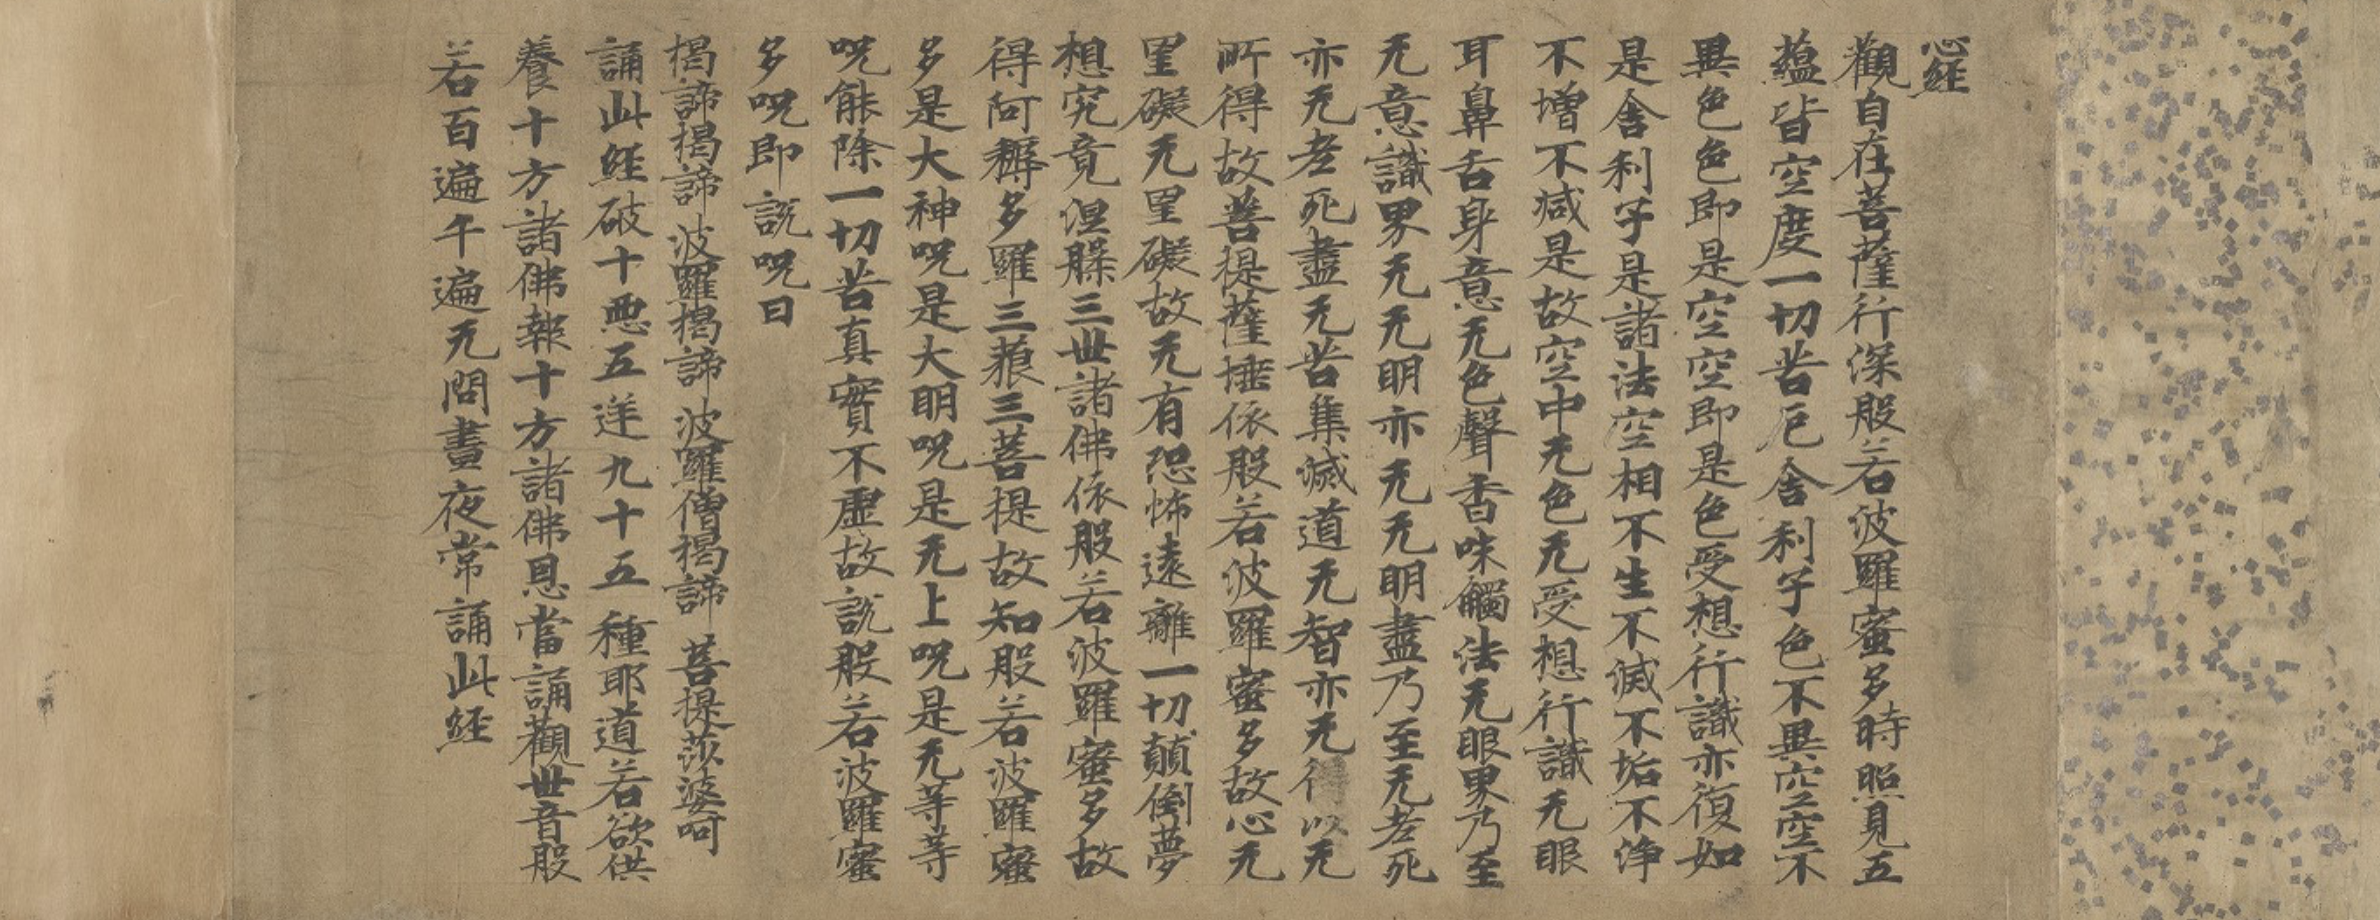 心経
觀自在菩薩行深般若波羅蜜多時照見五
蘊皆空度一切苦厄舎利子色不異空空不
異色色即是空空即是色受想行識亦復如
是舎利子是諸法空相不生不滅不垢不浄
不增不減是故空中无色无受想行識无眼
耳鼻舌身意无色聲香味觸法无眼界乃至
无意識界无无明亦无无明盡乃至无老死
亦无老死盡无苦集滅道无智亦无得以无
所得故菩提薩埵依般若波羅蜜多故心无
罣礙无罣礙故无有恐怖遠離一切顛倒夢
想究竟涅槃三世諸佛依般若波羅蜜多故
得阿耨多羅三藐三菩提故知般若波羅蜜
多是大神呪是大明呪是无上呪是无等等
呪能除一切苦真實不虛故說般若波羅蜜
多呪即說呪曰
揭諦揭諦 波羅揭諦 波羅僧揭諦 菩提莎婆呵
誦此経破十悪五逆九十五種耶道若欲供
養十方諸佛報十方諸佛恩當誦觀世音般
若百遍千遍无問晝夜常誦此経